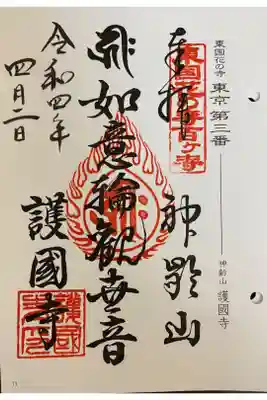 東国花の寺 東京 第三番
神齢山 護國寺
奉拝
東国花の寺百ヶ寺
神齢山
如意輪観世音
護國寺
令和四年
四月二日